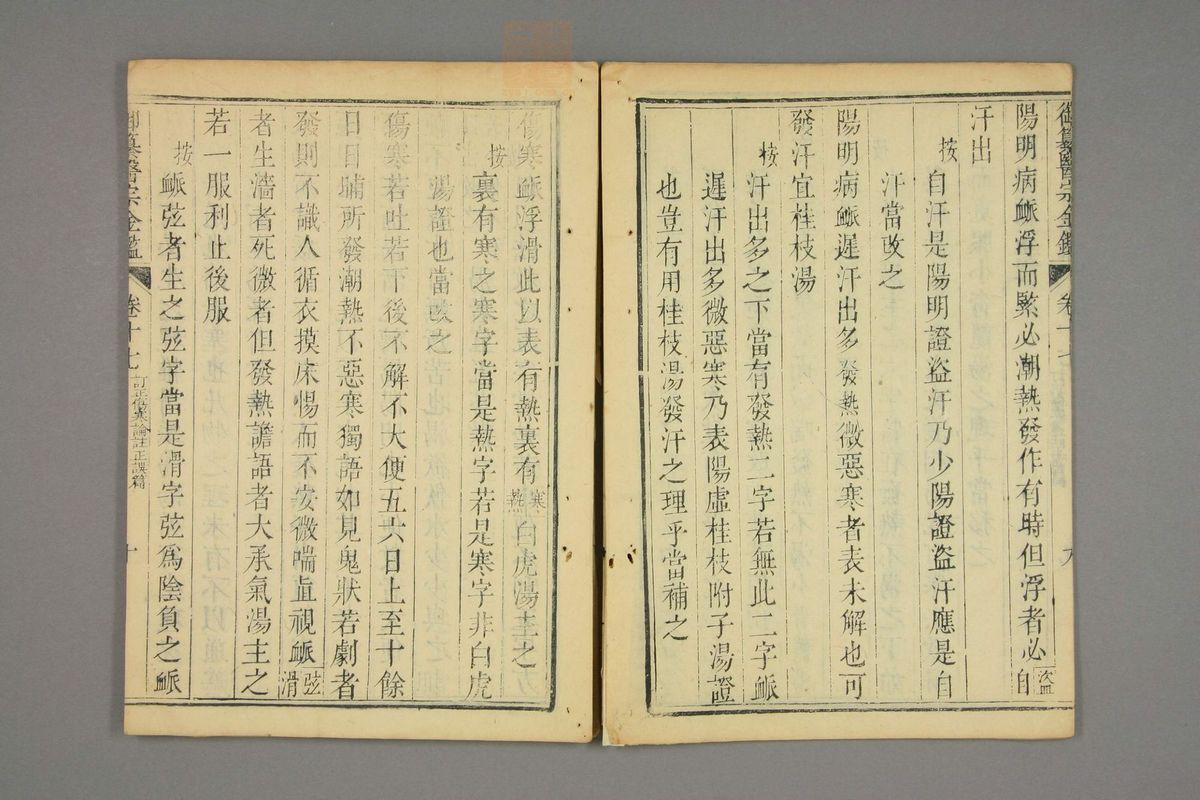 御纂醫宗金鑑 卷十七 九
陽明病䘑浮而緊必潮熱發作有時但浮者必盜自
汗出
按自汗是陽明證盜汗乃少陽證盜汗應是自
汗當改之
陽明病䘑遲汗出多發熱微惡寒者表未解也可
發汗宜桂枝湯
按汗出多之下當有發熱二字若無此二字䘑
遲汗出多微惡寒乃表陽虛桂枝附子湯證
也豈有用桂枝湯發汗之理乎當補之
傷寒䘑浮滑此以表有熱裏有寒熱白虎湯主之
按裏有寒之寒字當是熱字若是寒字非白虎
湯證也當改之
傷寒若吐若下後不解不大便五六日上至十餘
日日晡所發潮熱不惡寒獨語如見鬼狀若劇者
發則不識人循衣摸床惕而不安微喘直視䘑弦滑
者生濇者死微者但發熱譫語者大承氣湯主之
若一服利止後服
按䘑弦者生之弦字當是滑字弦爲陰負之䘑
御纂醫宗金鑑 卷十七 訂正傷寒論註正誤篇 十